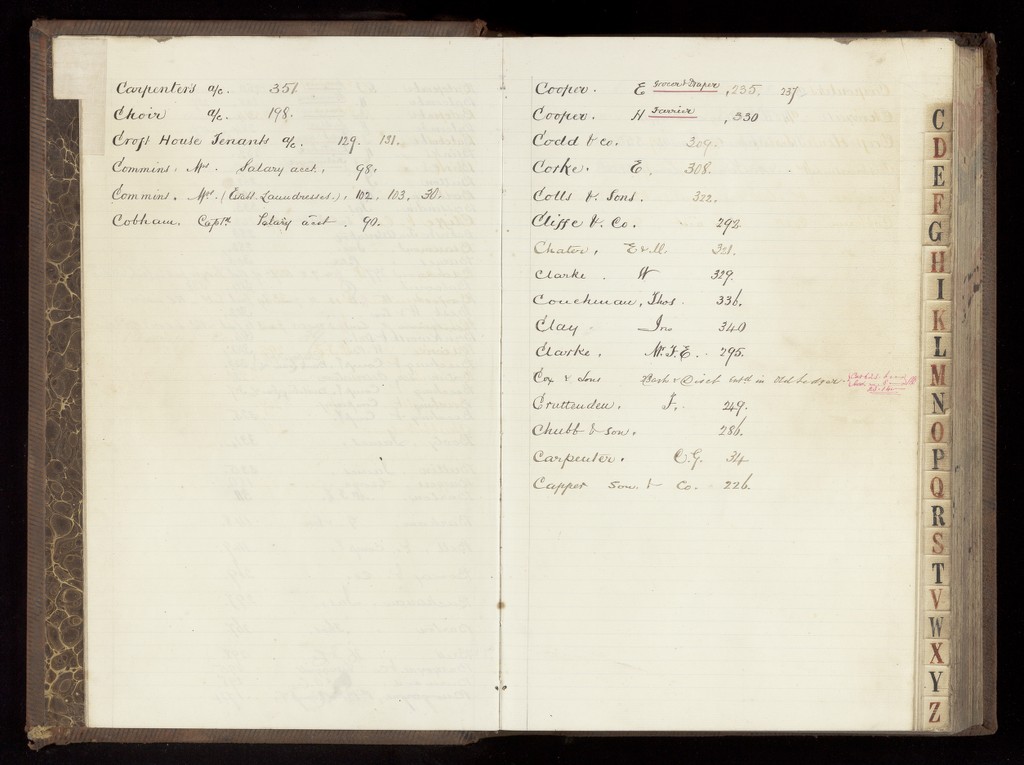 Carpenters a/c. 351.
Choir a/c. 198.
Croft House Tenants a/c. 129. 131.
Commins. Mrs. Salary acct. 98.
Commins. Mrs. (Estabt. Laundresses.). 102. 103. 30.
Cobham. Captn. Salary acct. 90.
Cooper. E Grocer & Draper, 235. 237
Cooper. H Farrier, 330
Codd & Co. 309.
Corke. E. 308.
Colls & Sons. 322.
Cliffe & Co. 292.
Chater, E & M. 321.
Clarke. W 329.
Couchman, Thos. 336.
Clay Jno 340
Clarke. Mr. F. E. 295.
Cox & Sons in Old Ledger
Cruttenden. F. 249.
Chubb & Son. 286.
Carpenter. C. G. 34
Capper Son. & Co. 226.
C
D
E
F
G
H
I
K
L
M
N
O
P
Q
R
S
T
V
W
X
Y
Z